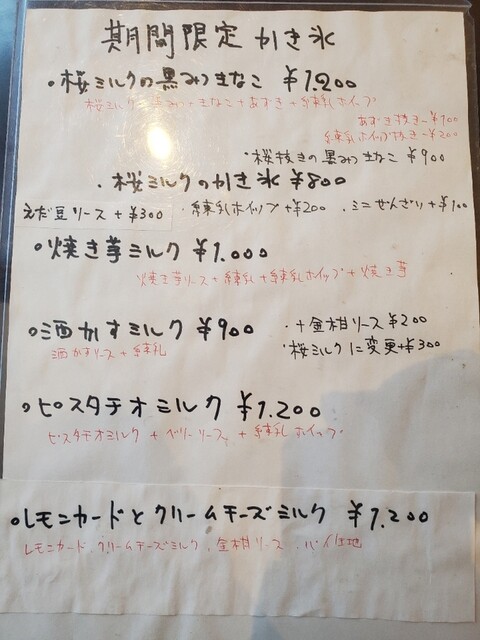 期間限定 かき氷
・桜ミルクの黒みつきなこ ¥1.200
桜ミルク+黒みつ+きなこ+あずき+練乳ホイップ
あずき抜き-¥100
練乳ホイップ抜き-¥200
・桜抜きの黒みつきなこ ¥900
・桜ミルクのかき氷 ¥800
えだ豆ソース+¥300 ・練乳ホイップ+¥200 ・ミニぜんざい+¥100
・焼き芋ミルク ¥1.000
焼き芋ソース+練乳+練乳ホイップ+焼き芋
・酒かすミルク ¥900 ・+金柑ソース ¥200
酒かすソース+練乳 ・桜ミルクに変更+¥300
・ピスタチオミルク ¥1.200
ピスタチオミルク+ベリーソース+練乳ホイップ
・レモンカードとクリームチーズミルク ¥1,200
レモンカード.クリームチーズミルク.金柑ソース.パイ生地